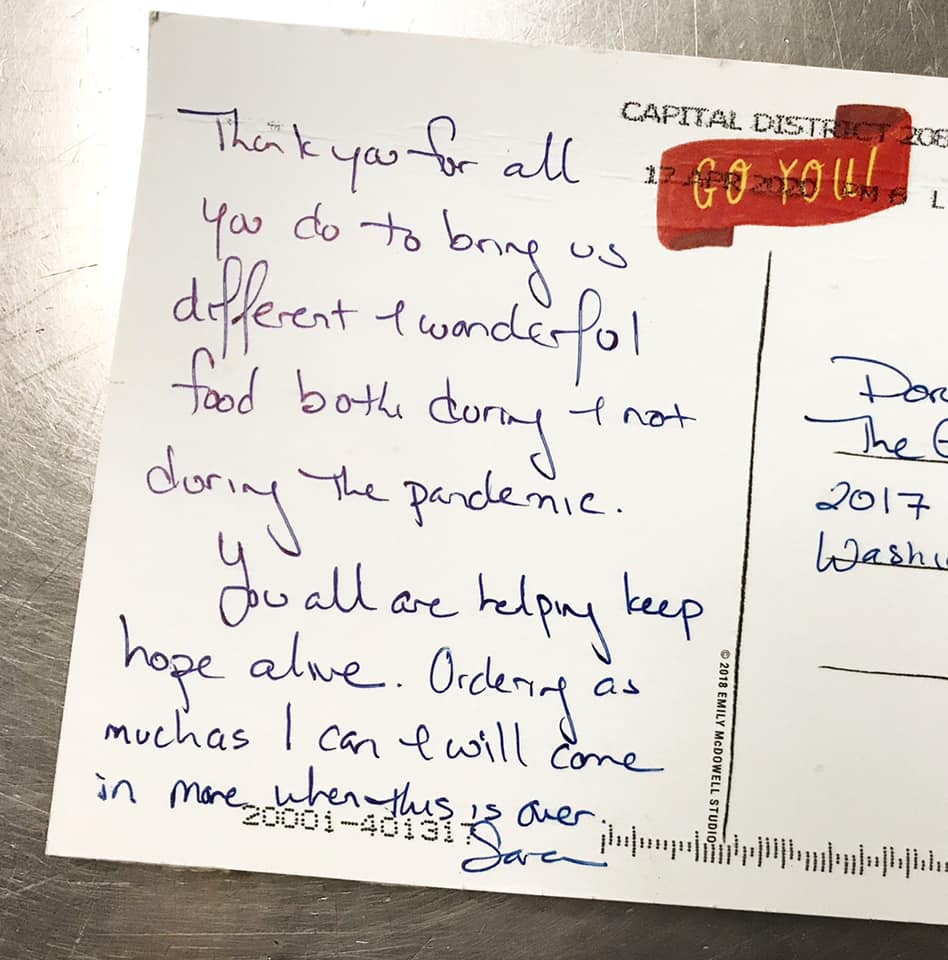 Thank you for all
you do to bring us
different & wonderful
food both during & not
during the pandemic.
You all are helping keep
hope alive. Ordering as
much as I can & will come
in more when this is over.
Sara
CAPITAL DISTRICT 208
17 APR 2020 PM 6 L
GO YOU!
The
2017
© 2018 EMILY McDOWELL STUDIO
20001-401317